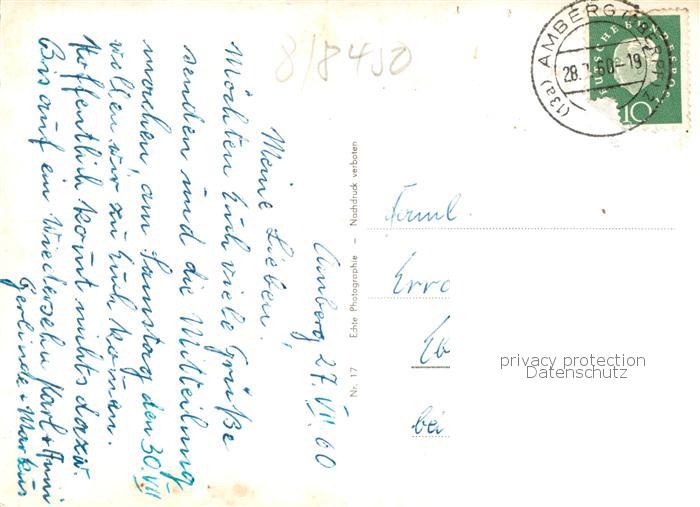 Amberg, 27. VII. 60
Meine Lieben!
Möchten Euch viele Grüße
senden und die Mitteilung
machen, am Samstag den 30. VII
wollen wir zu Euch kommen.
Hoffentlich komt nichts dazw.
Bis auf ein Wiedersehn Karl + Anni
Gerlinde + Markus
Nr. 17 Echte Photographie – Nachdruck verboten
8/8450
(13a) AMBERG (OBERPFALZ)
28.7.60-19
DEUTSCHE BUNDESPOST
10
Faml.
Erro
Eb
bei
privacy protection
Datenschutz